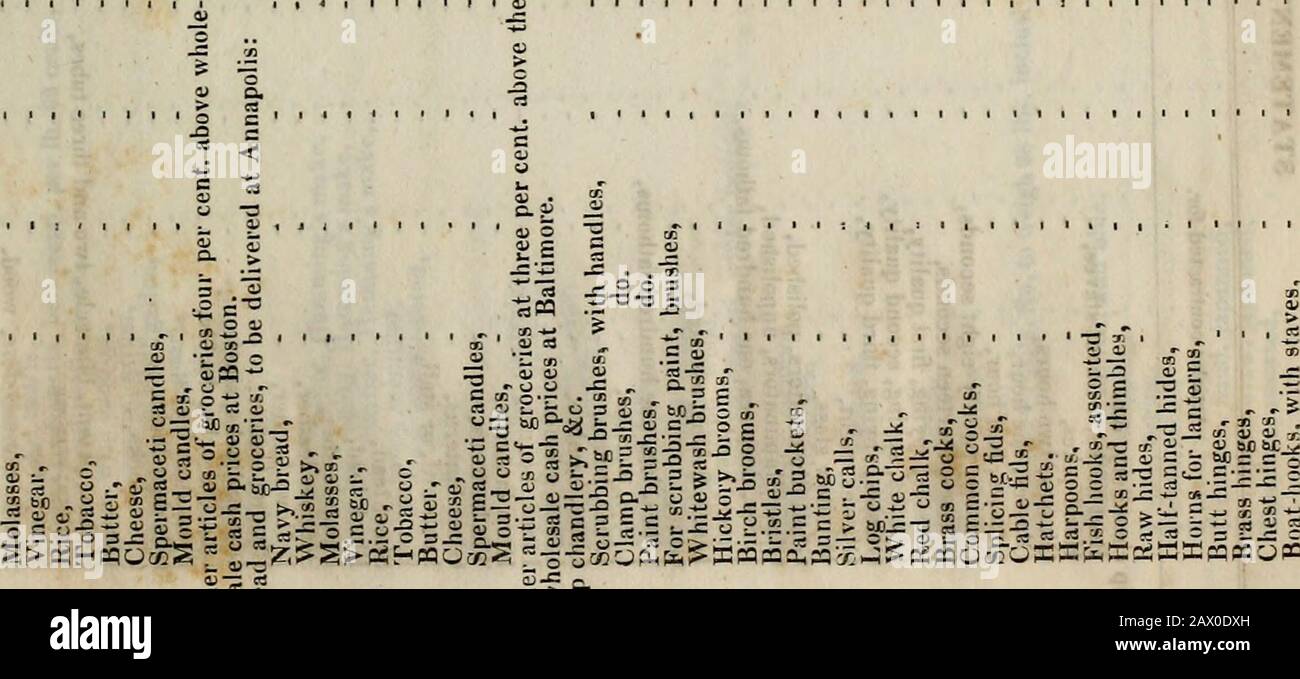 Molasses,
Vinegar,
Rice,
Tobacco,
Butter,
Cheese,
Spermaceti candles,
Mould candles,
er articles of groceries four per cent. above whole-
ale cash prices at Boston.
ad and groceries, to be delivered at Annapolis:
Navy bread,
Whiskey,
Molasses,
Vinegar,
Rice,
Tobacco,
Butter,
Cheese,
Spermaceti candles,
Mould candles,
er articles of groceries at three per cent. above the
wholesale cash prices at Baltimore.
p chandlery, &c.
Scrubbing brushes, with handles,
Clamp brushes, do.
Paint brushes, do.
For scrubbing paint, brushes,
Whitewash brushes,
Hickory brooms,
Birch brooms,
Bristles,
Paint buckets,
Bunting,
Silver calls,
Log chips,
White chalk,
Red chalk,
Brass cocks,
Common cocks,
Splicing fids,
Cable fids,
Hatchets,
Harpoons,
Fish hooks, assorted,
Hooks and thimbles,
Raw hides,
Half-tanned hides,
Horns for lanterns,
Butt hinges,
Brass hinges,
Chest hinges,
Boat-hooks, with staves,
alamy
a
alamy
Image ID: 2AX0DXH
www.alamy.com